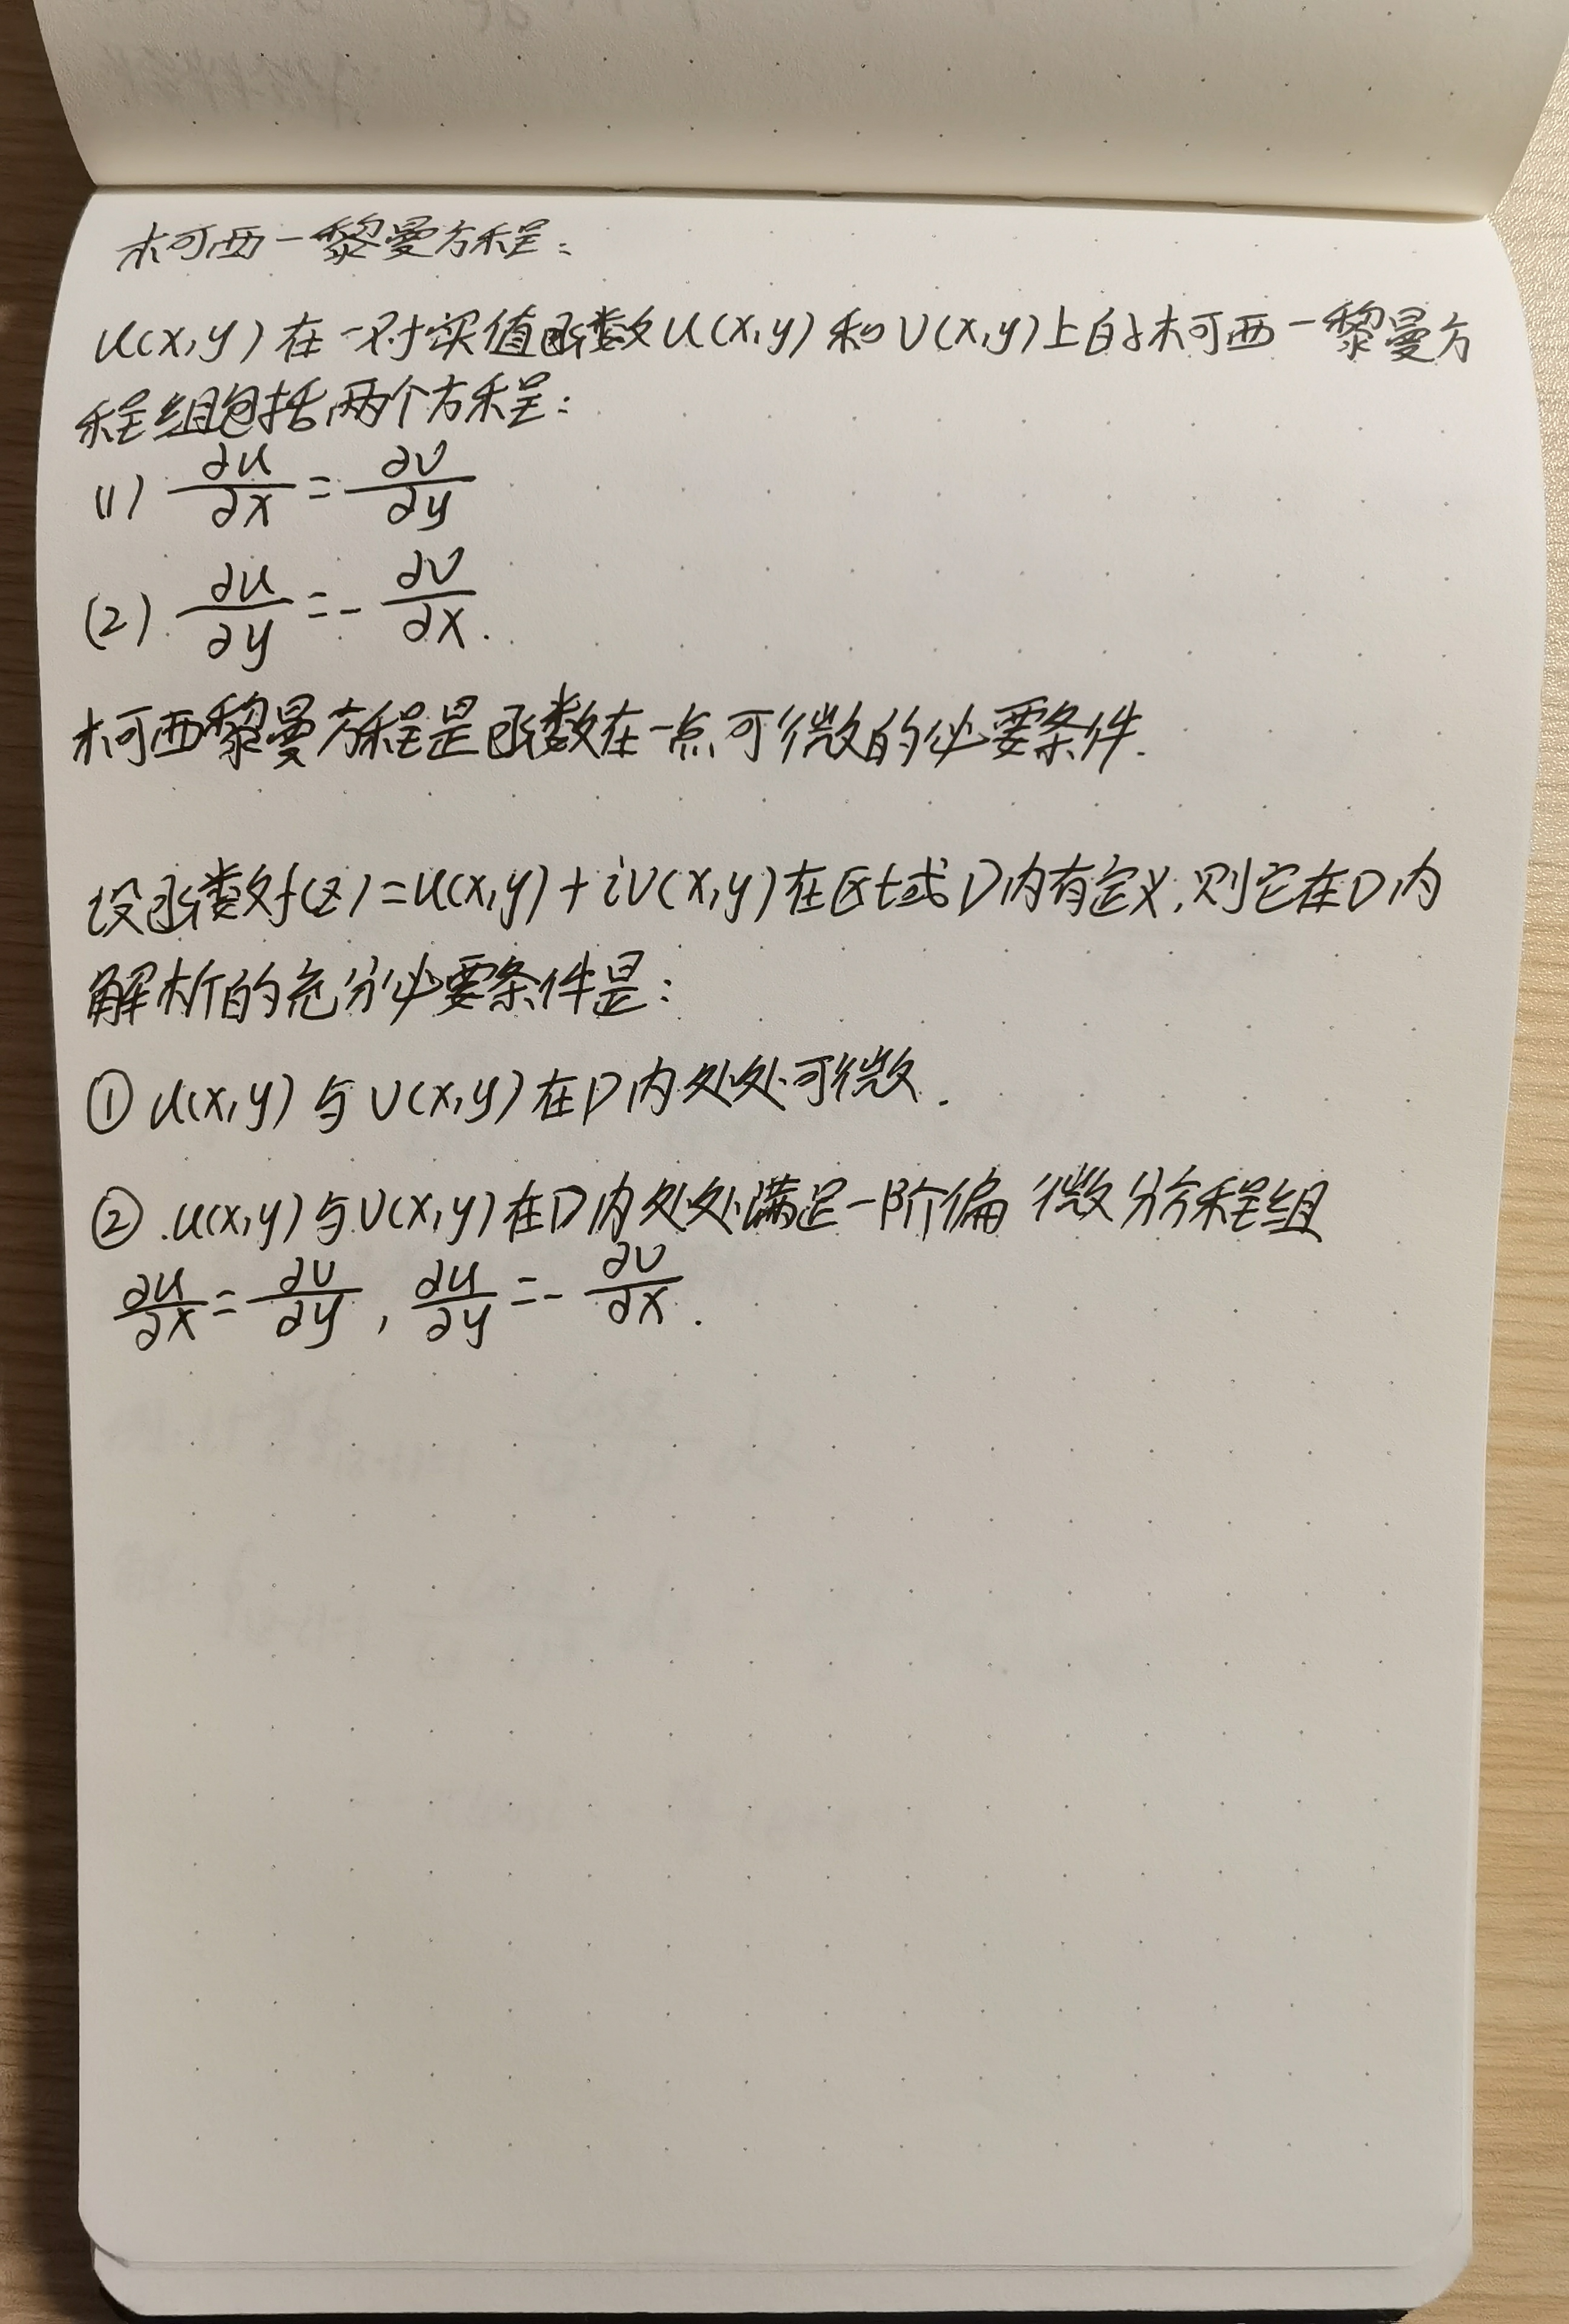 柯西-黎曼方程:
u(x,y)在一对实值函数u(x,y)和v(x,y)上的柯西-黎曼方
程组包括两个方程:
(1) ∂u/∂x = ∂v/∂y
(2) ∂u/∂y = - ∂v/∂x.
柯西黎曼方程是函数在一点可微的必要条件.
设函数f(z)=u(x,y)+iv(x,y)在区域D内有定义,则它在D内
解析的充分必要条件是:
① u(x,y)与v(x,y)在D内处处可微.
② u(x,y)与v(x,y)在D内处处满足一阶偏微分方程组
∂u/∂x = ∂v/∂y, ∂u/∂y = - ∂v/∂x.